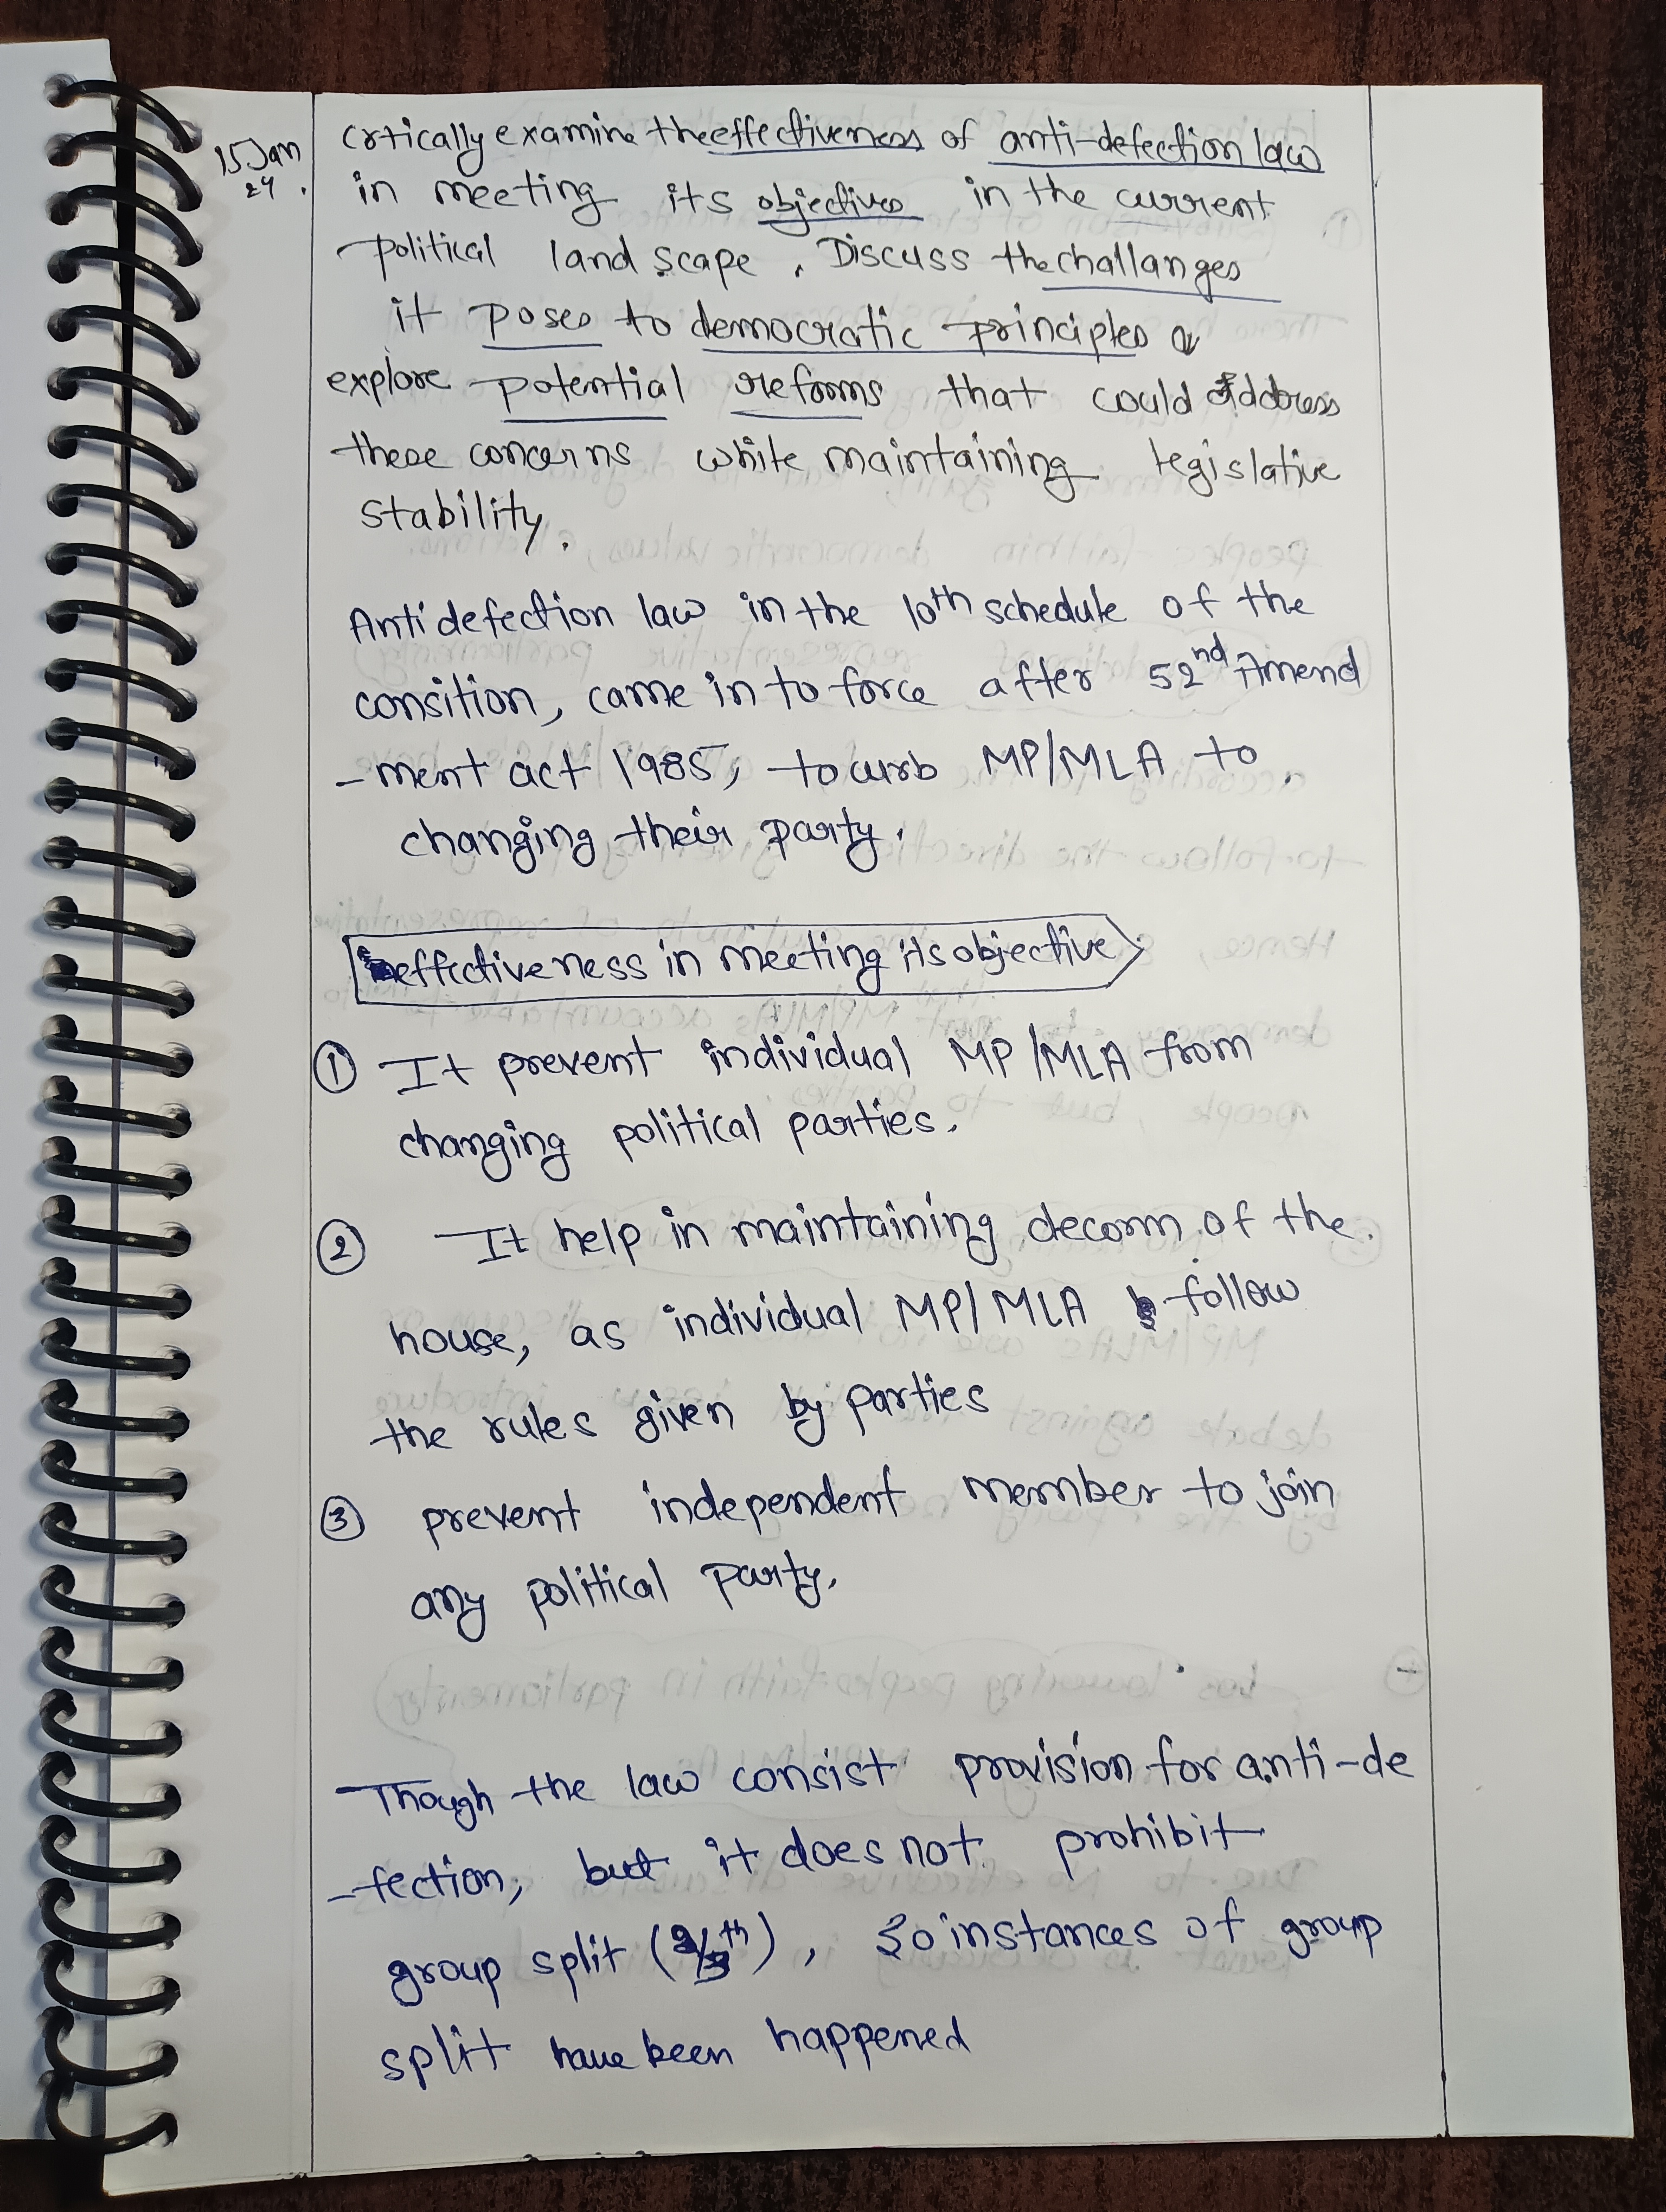 15 Jan
24.
Crtically examine the effectiveness of anti-defection law
in meeting its objectives in the current
political land scape. Discuss the challanges
it poses to democratic principles &
explore potential reforms that could address
these concerns while maintaining legislative
stability.
Anti defection law in the 10th schedule of the
consition, came in to force after 52nd Amend
-ment act 1985, to curb MP/MLA to
changing their party.
effectiveness in meeting its objective
① It prevent individual MP/MLA from
changing political parties.
② It help in maintaining decorm of the
house, as individual MP/MLA follow
the rules given by parties
③ prevent independent member to join
any political party.
Though the law consist provision for anti-de
-fection, but it does not prohibit
group split (2/3th), so instances of group
split have been happened